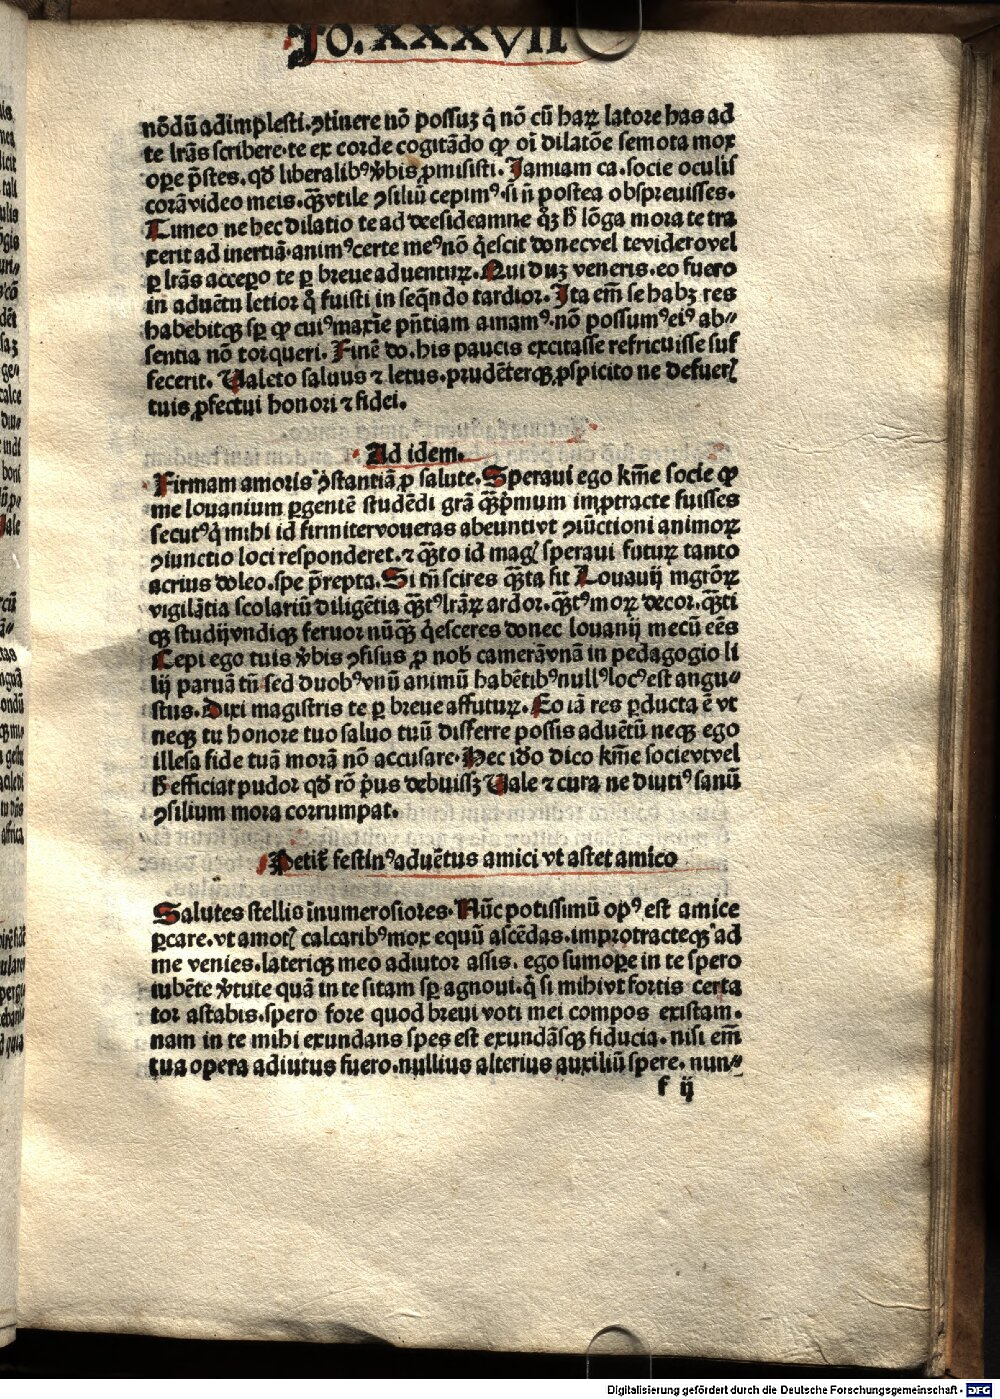 Fo. XXXVII
nōdū adimplesti. ↄtinere nō possuꝫ q̄ nō cū haꝝ latore has ad
te lr̄as scribere. te ex corde cogitādo ꝙ oī dilatōe semota mox
ope p̄stes. qd̄ liberalibꝰ v̄bis ꝓmisisti. Jamiam ca. socie oculis
corā video meis. qꝫ̄ vtile ↄsiliū cepimꝰ. si n̄ postea obspreuisses.
Timeo ne hec dilatio te ad desideamne qꝫ h̄ lōga mora te tra
xerit ad inertiā. animꝰ certe meꝰ nō q̇escit donec vel te videro vel
ꝑ lr̄as accepo te ꝑ breue aduentuꝝ. Qui duꝫ veneris. eo fuero
in aduētu letior q̄ fuisti in seq̄ndo tardior. Ita em̄ se habꝫ res
habebitqꝫ sꝑ ꝙ cuiꝰ maxīe pn̄tiam amamꝰ. nō possumꝰ eiꝰ ab⸗
sentia nō torqueri. Finē do. his paucis excitasse refricuisse suf
fecerit. Ualeto saluus ⁊ letus. prudēterqꝫ ꝓspicito ne defuerꝭ
tuis ꝓfectui honori ⁊ fidei.
Ad idem.
Firmam amoris ↄstantiā ꝓ salute. Speraui ego km̄e socie ꝙ
me louanium ꝑgentē studēdi grā qꝫ̄ p̄mum imꝓtracte fuisses
secutꝰ q̇ mihi id firmiter voueras abeunti vt ↄiūctioni animoꝝ
ↄiunctio loci responderet. ⁊ qꝫ̄to id magꝭ speraui futuꝝ tanto
acrius doleo. spe p̄repta. Si tn̄ scires qꝫ̄ta sit Louanij mgr̄oꝝ
vigilātia scolariū diligētia qꝫ̄tꝰ lr̄aꝝ ardor. qꝫ̄tꝰ moꝝ decor. qꝫ̄ti
qꝫ studij vndiqꝫ feruor nūqꝫ̄ q̇esceres donec louanij mecū eēs
Cepi ego tuis v̄bis ↄfisus ꝓ nob̄ camerā vnā in pedagogio li
lij paruā tn̄ sed duobꝰ vnū animū habētibꝰ nullꝰ locꝰ est angu⸗
stus. Dixi magistris te ꝑ breue affutuꝝ. Eo iā res ꝑducta ē vt
neqꝫ tu honore tuo saluo tuū differre possis aduētū neqꝫ ego
illesa fide tuā morā nō accusare. Hec iḋo dico km̄e socie vt vel
h̄ efficiat pudor qd̄ rō p̄us debuissꝫ Uale ⁊ cura ne diutiꝰ sanū
ↄsilium mora corrumpat.
Petit̄ festinꝰ aduētus amici vt astet amico
Salutes stellis īnumerosiores. Nūc potissimū opꝰ est amice
p̄care. vt amotꝭ calcaribꝰ mox equū ascēdas. imꝓtracteqꝫ ad
me venies. lateriqꝫ meo adiutor assis. ego sumope in te spero
iubēte v̄tute quā in te sitam sꝑ agnoui. q̇ si mihi vt fortis certa
tor astabis. spero fore quod breui voti mei compos existam.
nam in te mihi exundans spes est exundāsqꝫ fiducia. nisi em̄
tua opera adiutus fuero. nullius alterius auxiliū spere. nun⸗
f ij
Digitalisierung gefördert durch die Deutsche Forschungsgemeinschaft - DFG